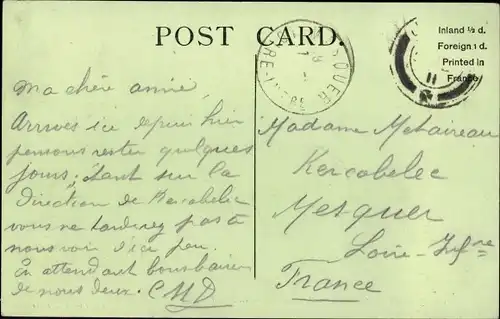 POST CARD.
Inland ½ d.
Foreign 1 d.
Printed in
France
MESQUER
Ma chère amie,
Arrivés ici depuis hier
pensons rester quelques
jours; étant sur la
Direction de Kercabelec
vous ne tarderez pas à
nous voir d'ici peu.
En attendant bons baisers
de nous deux. CMD
Madame Métaireau
Kercabelec
Mesquer
Loire-Infre
France